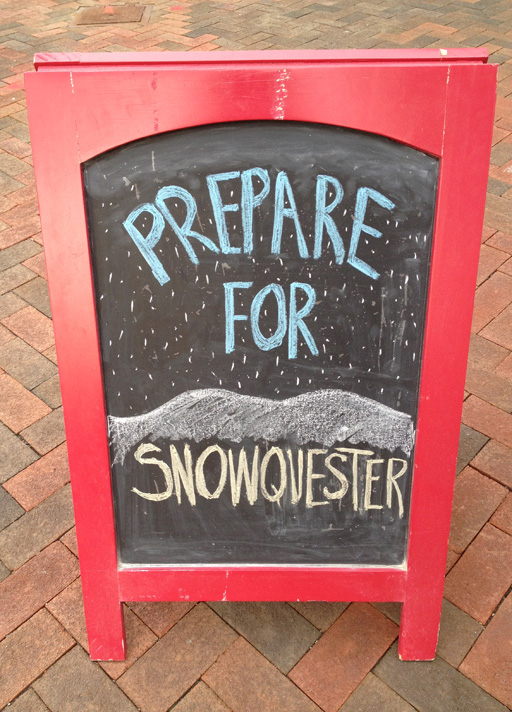 PREPARE
FOR
SNOWQUESTER